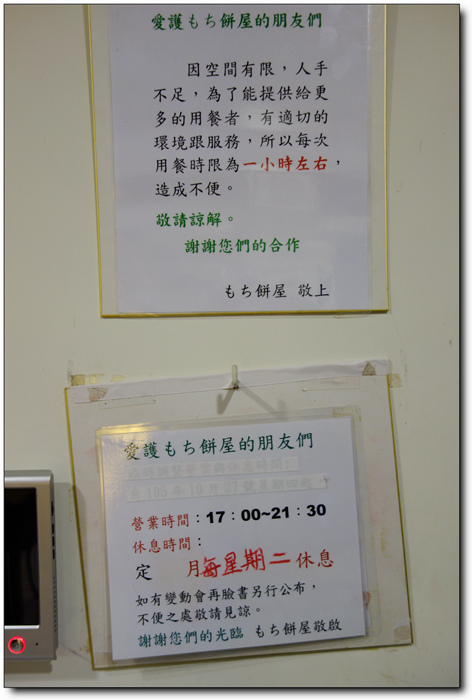 愛護もち餅屋的朋友們
因空間有限，人手
不足，為了能提供給更
多的用餐者，有適切的
環境跟服務，所以每次
用餐時限為一小時左右，
造成不便。
敬請諒解。
謝謝您們的合作
もち餅屋 敬上
愛護もち餅屋的朋友們
營業時間：17：00~21：30
休息時間：
定 月每星期二休息
如有變動會再臉書另行公布，
不便之處敬請見諒。
謝謝您們的光臨 もち餅屋敬啟